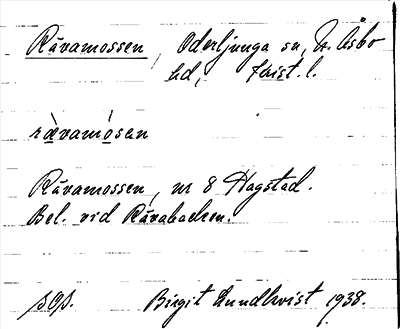 Råvamossen, Oderljunga sn, N. Åsbo
hd, Krist. l.
ràvamósen
Råvamossen, nr 8 Hagstad.
Bel. vid Råvabacken.
Birgit Lundkvist 1938.